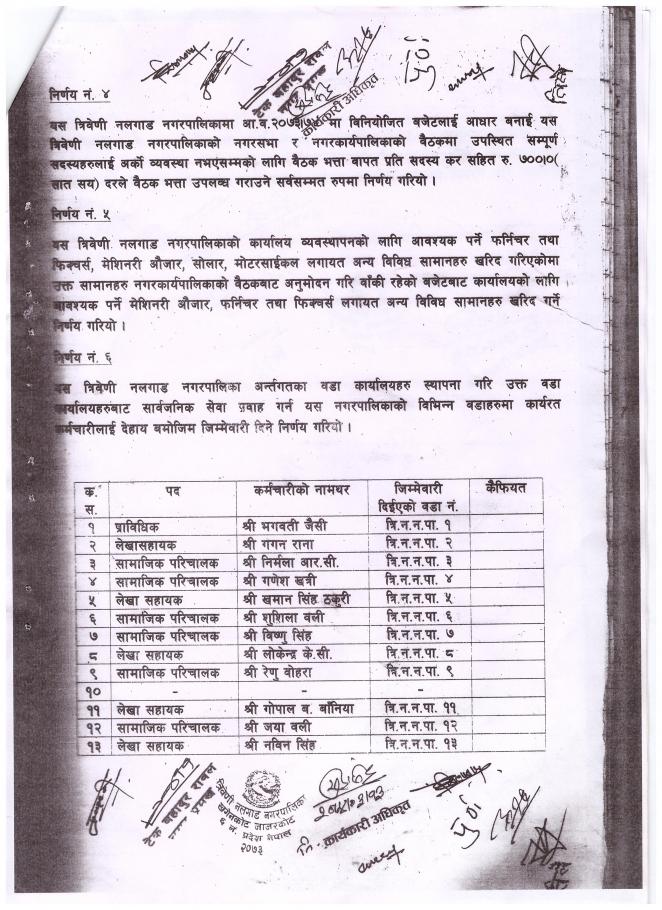 टेक बहादुर रावल
नगर प्रमुख
कार्यकारी अधिकृत
निर्णय नं. ४
यस त्रिवेणी नलगाड नगरपालिकामा आ.व.२०७३/७४ मा विनियोजित बजेटलाई आधार बनाई यस
त्रिवेणी नलगाड नगरपालिकाको नगरसभा र नगरकार्यपालिकाको बैठकमा उपस्थित सम्पूर्ण
सदस्यहरुलाई अर्को व्यवस्था नभएसम्मको लागि बैठक भत्ता वापत प्रति सदस्य कर सहित रु. ७००।०(
सात सय) दरले बैठक भत्ता उपलब्ध गराउने सर्वसम्मत रुपमा निर्णय गरियो ।
निर्णय नं. ५
यस त्रिवेणी नलगाड नगरपालिकाको कार्यालय व्यवस्थापनको लागि आवश्यक पर्ने फर्निचर तथा
फिक्चर्स, मेशिनरी औजार, सोलार, मोटरसाईकल लगायत अन्य विविध सामानहरु खरिद गरिएकोमा
उक्त सामानहरु नगरकार्यपालिकाको बैठकबाट अनुमोदन गरि वाँकी रहेको बजेटबाट कार्यालयको लागि
आवश्यक पर्ने मेशिनरी औजार, फर्निचर तथा फिक्चर्स लगायत अन्य विविध सामानहरु खरिद गर्ने
निर्णय गरियो ।
निर्णय नं. ६
यस त्रिवेणी नलगाड नगरपालिका अर्न्तगतका वडा कार्यालयहरु स्थापना गरि उक्त वडा
कार्यालयहरुबाट सार्वजनिक सेवा प्रवाह गर्न यस नगरपालिकाको विभिन्न वडाहरुमा कार्यरत
कर्मचारीलाई देहाय बमोजिम जिम्मेवारी दिने निर्णय गरियो ।
क. स. पद कर्मचारीको नामथर जिम्मेवारी दिईएको वडा नं. कैफियत
१ प्राविधिक श्री भगवती जैसी त्रि.न.न.पा. १
२ लेखासहायक श्री गगन राना त्रि.न.न.पा. २
३ सामाजिक परिचालक श्री निर्मला आर.सी. त्रि.न.न.पा. ३
४ सामाजिक परिचालक श्री गणेश खत्री त्रि.न.न.पा. ४
५ लेखा सहायक श्री खमान सिंह ठकुरी त्रि.न.न.पा. ५
६ सामाजिक परिचालक श्री शुशिला वली त्रि.न.न.पा. ६
७ सामाजिक परिचालक श्री विष्णु सिंह त्रि.न.न.पा. ७
८ लेखा सहायक श्री लोकेन्द्र के.सी. त्रि.न.न.पा. ८
९ सामाजिक परिचालक श्री रेणु वोहरा त्रि.न.न.पा. ९
१० - - -
११ लेखा सहायक श्री गोपाल ब. बाँनिया त्रि.न.न.पा. ११
१२ सामाजिक परिचालक श्री जया वली त्रि.न.न.पा. १२
१३ लेखा सहायक श्री नविन सिंह त्रि.न.न.पा. १३
टेक बहादुर रावल
नगर प्रमुख
त्रिवेणी नलगाड नगरपालिका
जाजरकोट
६ नं. प्रदेश नेपाल
२०७३
नि. कार्यकारी अधिकृत